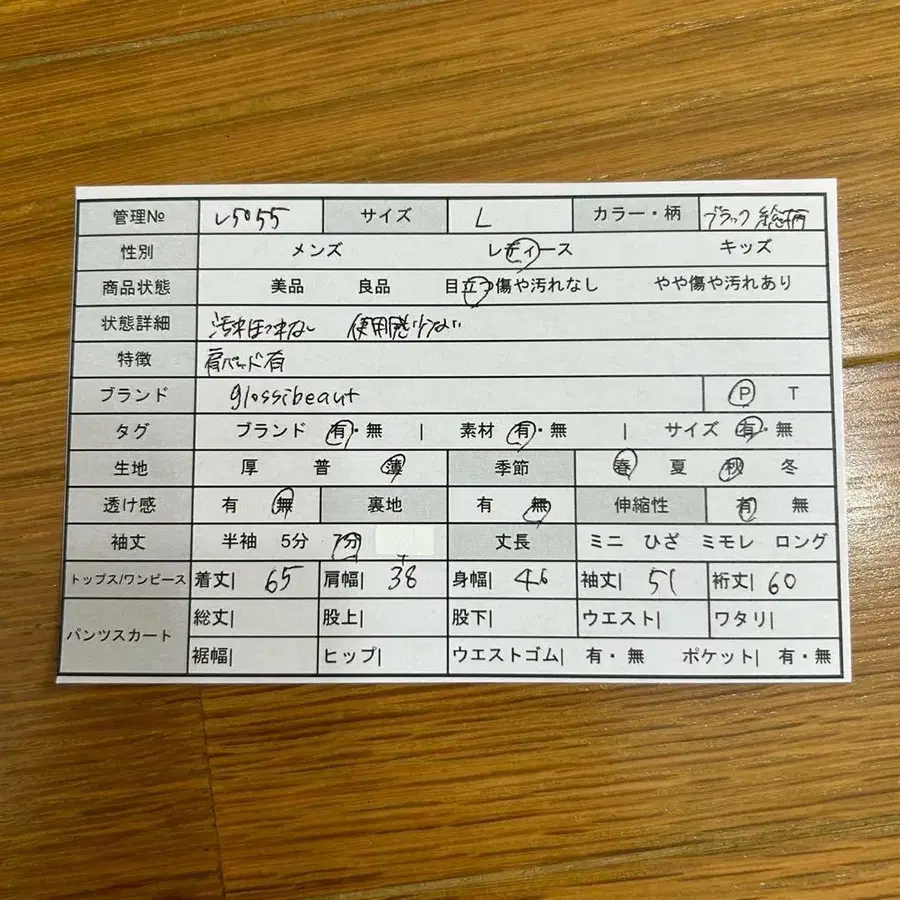 管理№ レ5055 サイズ L カラー・柄 ブラック 総柄
性別 メンズ レディース キッズ
商品状態 美品 良品 目立つ傷や汚れなし やや傷や汚れあり
状態詳細 汚れほつれなし 使用感少ない
特徴 肩パッド有
ブランド glossibeaut P T
タグ ブランド 有・無 | 素材 有・無 | サイズ 有・無
生地 厚 普 薄 季節 春 夏 秋 冬
透け感 有 無 裏地 有 無 伸縮性 有 無
袖丈 半袖 5分 7分 丈長 ミニ ひざ ミモレ ロング
トップス/ワンピース 着丈| 65 肩幅| 38 身幅| 46 袖丈| 51 裄丈| 60
パンツスカート 総丈| 股上| 股下| ウエスト| ワタリ|
裾幅| ヒップ| ウエストゴム| 有・無 ポケット| 有・無